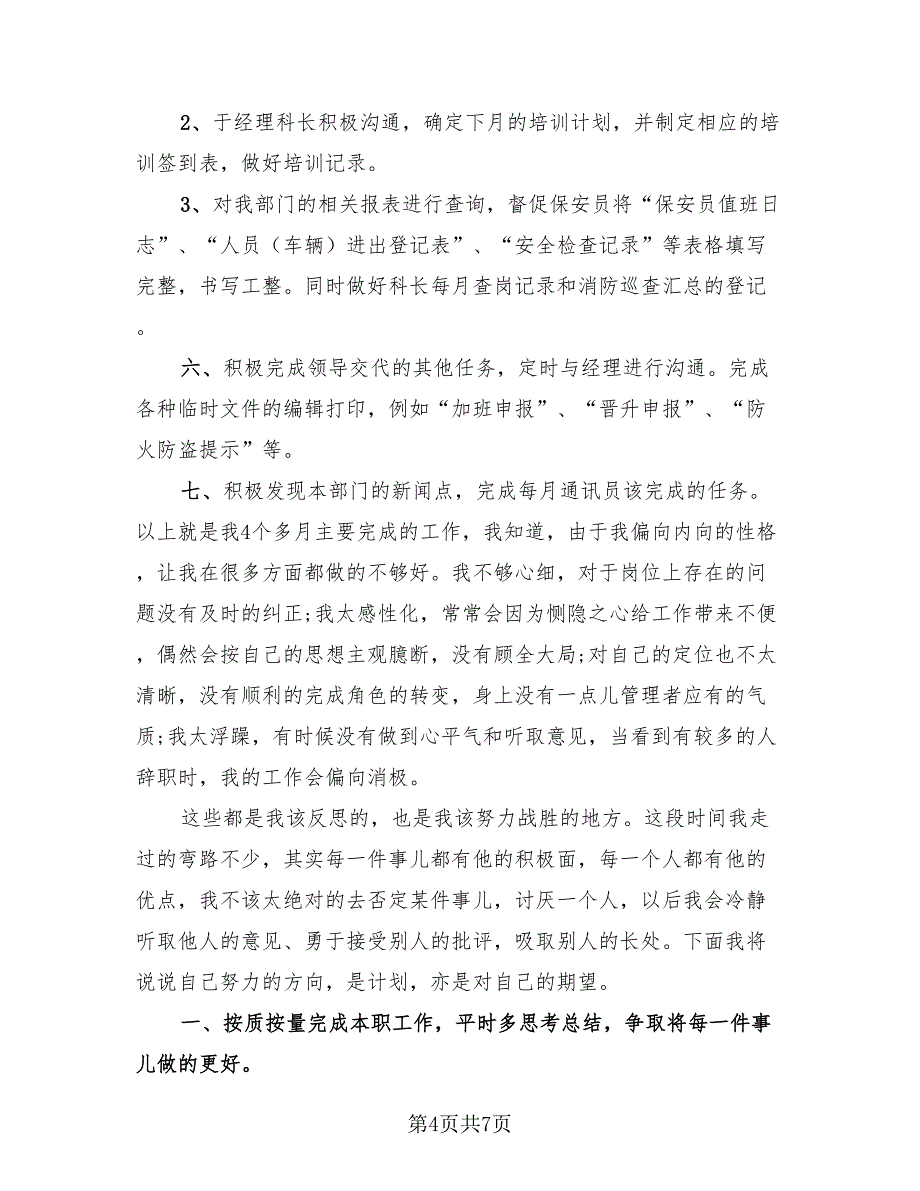 2、于经理科长积极沟通，确定下月的培训计划，并制定相应的培
训签到表，做好培训记录。
3、对我部门的相关报表进行查询，督促保安员将“保安员值班日
志”、“人员（车辆）进出登记表”、“安全检查记录”等表格填写
完整，书写工整。同时做好科长每月查岗记录和消防巡查汇总的登记
。
六、积极完成领导交代的其他任务，定时与经理进行沟通。完成
各种临时文件的编辑打印，例如“加班申报”、“晋升申报”、“防
火防盗提示”等。
七、积极发现本部门的新闻点，完成每月通讯员该完成的任务。
以上就是我4个多月主要完成的工作，我知道，由于我偏向内向的性格
，让我在很多方面都做的不够好。我不够心细，对于岗位上存在的问
题没有及时的纠正;我太感性化，常常会因为恻隐之心给工作带来不便
，偶然会按自己的思想主观臆断，没有顾全大局;对自己的定位也不太
清晰，没有顺利的完成角色的转变，身上没有一点儿管理者应有的气
质;我太浮躁，有时候没有做到心平气和听取意见，当看到有较多的人
辞职时，我的工作会偏向消极。
这些都是我该反思的，也是我该努力战胜的地方。这段时间我走
过的弯路不少，其实每一件事儿都有他的积极面，每一个人都有他的
优点，我不该太绝对的去否定某件事儿，讨厌一个人，以后我会冷静
听取他人的意见、勇于接受别人的批评，吸取别人的长处。下面我将
说说自己努力的方向，是计划，亦是对自己的期望。
一、按质按量完成本职工作，平时多思考总结，争取将每一件事
儿做的更好。
第4页共7页